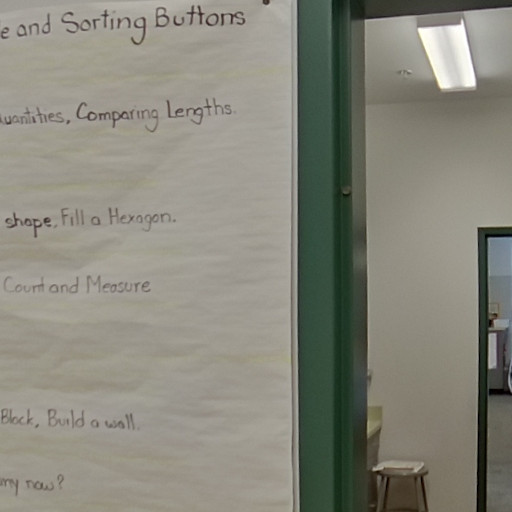 e and Sorting Buttons
uantities, Comparing Lengths.
shape, Fill a Hexagon.
Count and Measure
Block, Build a wall.
my now?